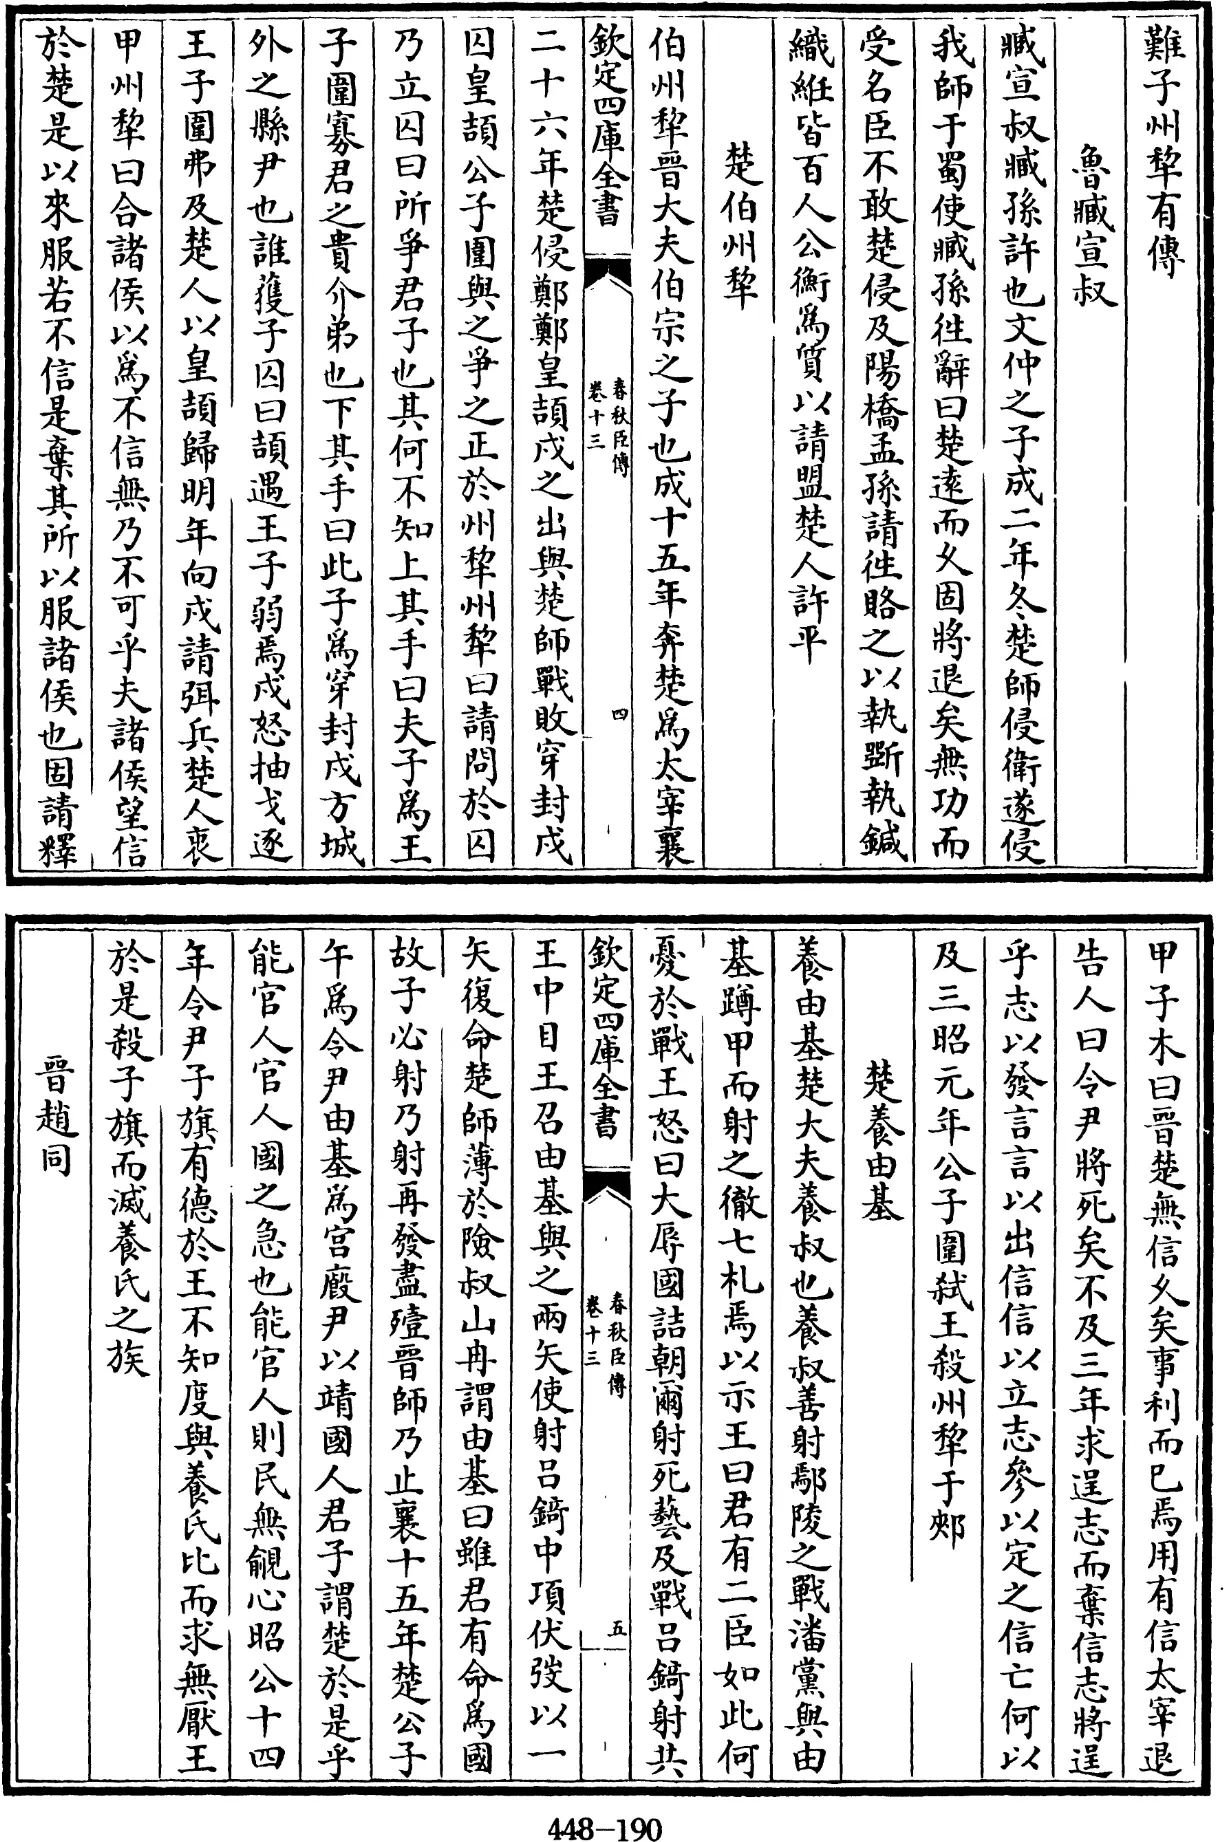 難子州犂有傳
魯臧宣叔
臧宣叔臧孫許也文仲之子成二年冬楚師侵衛遂侵
我師于蜀使臧孫徃辭曰楚逺而乆固將退矣無功而
受名臣不敢楚侵及陽橋孟孫請徃賂之以執斲執鍼
織紝皆百人公衡爲質以請盟楚人許平
楚伯州犂
伯州犂晉大夫伯宗之子也成十五年奔楚爲太宰襄
欽定四庫全書
春秋臣傳
卷十三
四
二十六年楚侵鄭鄭皇頡戍之出與楚師戰敗穿封戍
囚皇頡公子圍與之爭之正於州犂州犂曰請問於囚
乃立囚曰所爭君子也其何不知上其手曰夫子爲王
子圍寡君之貴介弟也下其手曰此子爲穿封戍方城
外之縣尹也誰獲子囚曰頡遇王子弱焉戍怒抽戈逐
王子圍弗及楚人以皇頡歸明年向戍請弭兵楚人衷
甲州犂曰合諸侯以爲不信無乃不可乎夫諸侯望信
於楚是以來服若不信是棄其所以服諸侯也固請釋
甲子木曰晉楚無信乆矣事利而已焉用有信太宰退
告人曰令尹將死矣不及三年求逞志而棄信志將逞
乎志以發言言以出信信以立志參以定之信亡何以
及三昭元年公子圍弑王殺州犂于郟
楚養由基
養由基楚大夫養叔也養叔善射鄢陵之戰潘黨與由
基蹲甲而射之徹七札焉以示王曰君有二臣如此何
憂於戰王怒曰大辱國詰朝爾射死藝及戰呂錡射共
欽定四庫全書
春秋臣傳
卷十三
五
王中目王召由基與之兩矢使射呂錡中項伏弢以一
矢復命楚師薄於險叔山冉謂由基曰雖君有命爲國
故子必射乃射再發盡殪晉師乃止襄十五年楚公子
午爲令尹由基爲宫廐尹以靖國人君子謂楚於是乎
能官人官人國之急也能官人則民無覦心昭公十四
年令尹子旗有德於王不知度與養氏比而求無厭王
於是殺子旗而滅養氏之族
晉趙同
448-190